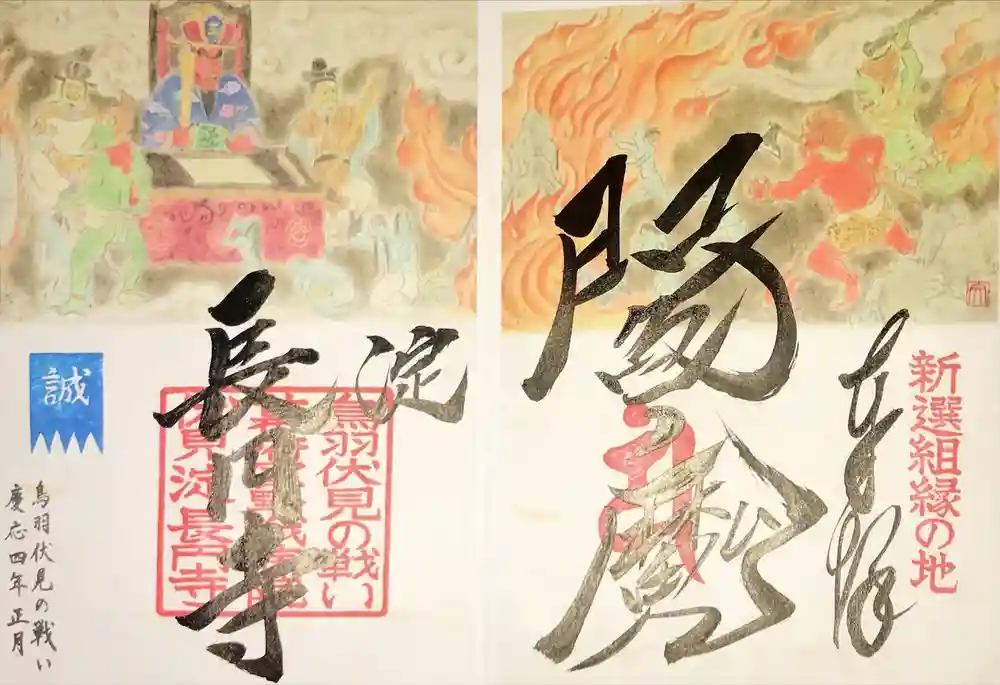 新選組縁の地
奉拝
閻魔
淀
長円寺
鳥羽伏見の戦い
伏見淀長円寺
誠
鳥羽伏見の戦い
慶応四年正月